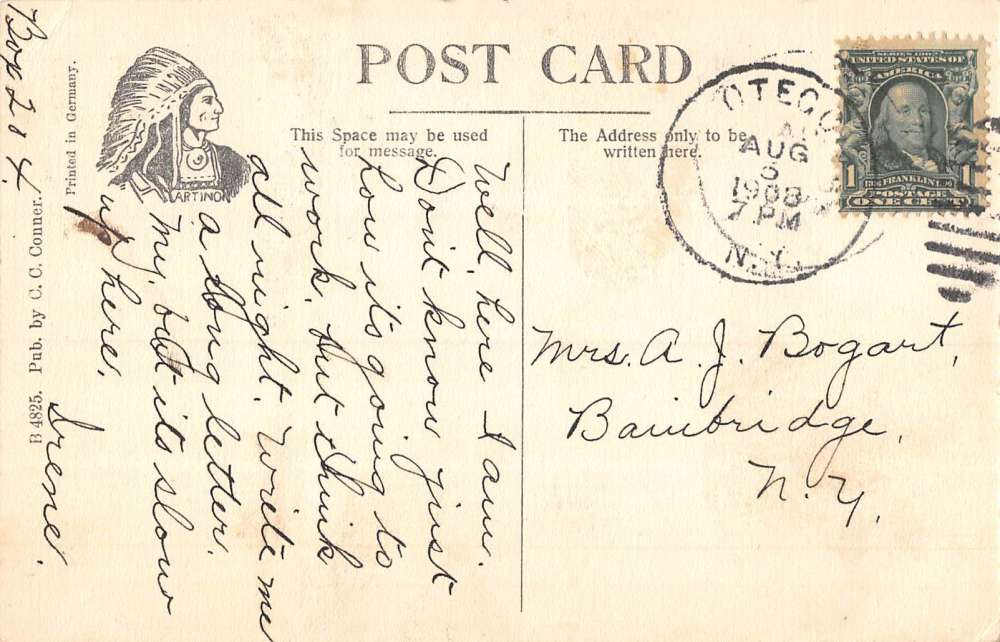 POST CARD
This Space may be used
for message.
The Address only to be
written here.
ARTINO
Printed in Germany.
B 4825. Pub. by C. C. Conner.
OTEGO
AUG
5
1908
7 PM
N.Y.
UNITED STATES OF
AMERICA
1
1
FRANKLIN
POSTAGE
ONE CENT
Well, here I am.
Don't know just
how it's going to
work, but think
all right. Write me
a long letter.
My, but its slow
up here.
Irene.
Box 204.
Mrs. A. J. Bogart,
Bainbridge,
N. Y.